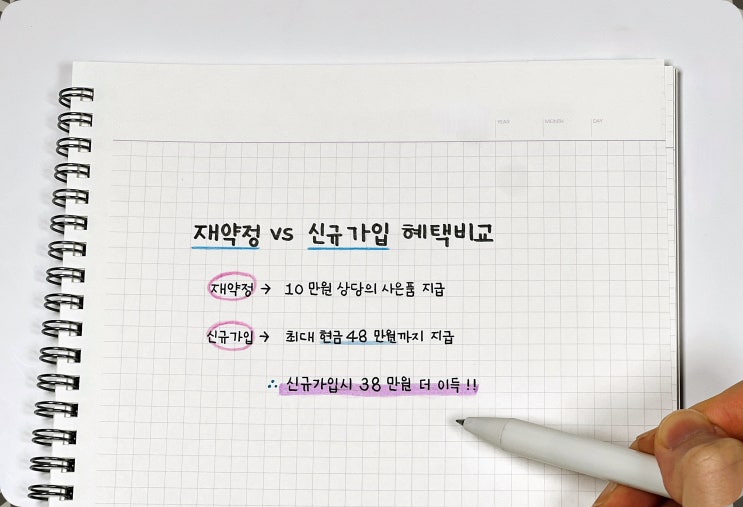 YEAR MONTH DAY
재약정 vs 신규가입 혜택비교
재약정 → 10만원 상당의 사은품 지급
신규가입 → 최대 현금 48만원까지 지급
∴ 신규가입시 38만원 더 이득!!